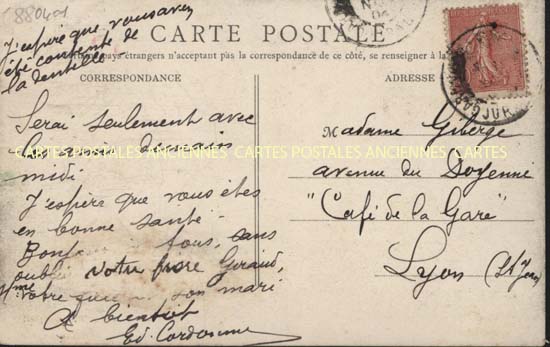 88040-1
CARTE POSTALE
pays étrangers n'acceptant pas la correspondance de ce côté, se renseigner à la
CORRESPONDANCE
ADRESSE
J'espère que vous avez
été contente de
la dentelle
Serai seulement avec
demain
midi
J'espère que vous êtes
en bonne santé.
tous, sans
oublier votre frère Giraud,
Mme votre son mari
A bientôt
Ed. Cordonnier
Madame Giberge
avenue du Doyenné
"Café de la Gare"
Lyon (St Jean)
CARTES POSTALES ANCIENNES CARTES POSTALES ANCIENNES CARTES POSTALES ANCIENNES